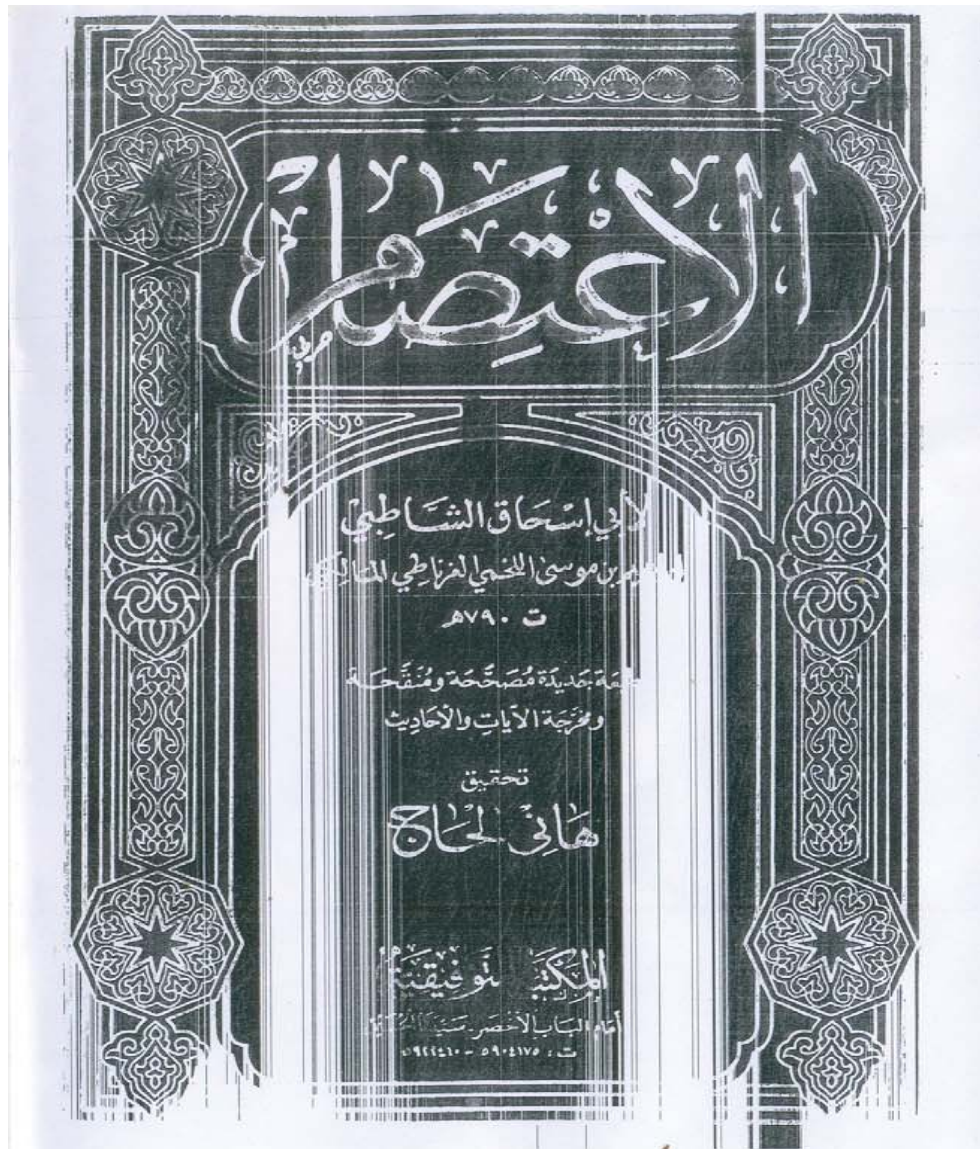 الاعتصام
حربي
لأبي إسْحَاق الشَّاطِبيّ
بن موسى اللخمي الغرناطي المالكي
ت ٧٩٠هـ
جَديدَة مُصَحَّحَة ومُنَقَّحَة
ومخرَّجَة الآيات والأحَاديث
تحقيق
هَانِي الحَاج
المكتبة التوفيقية
أمام الباب الأخضر
ت : ٥٩٠٤١٧٥ -